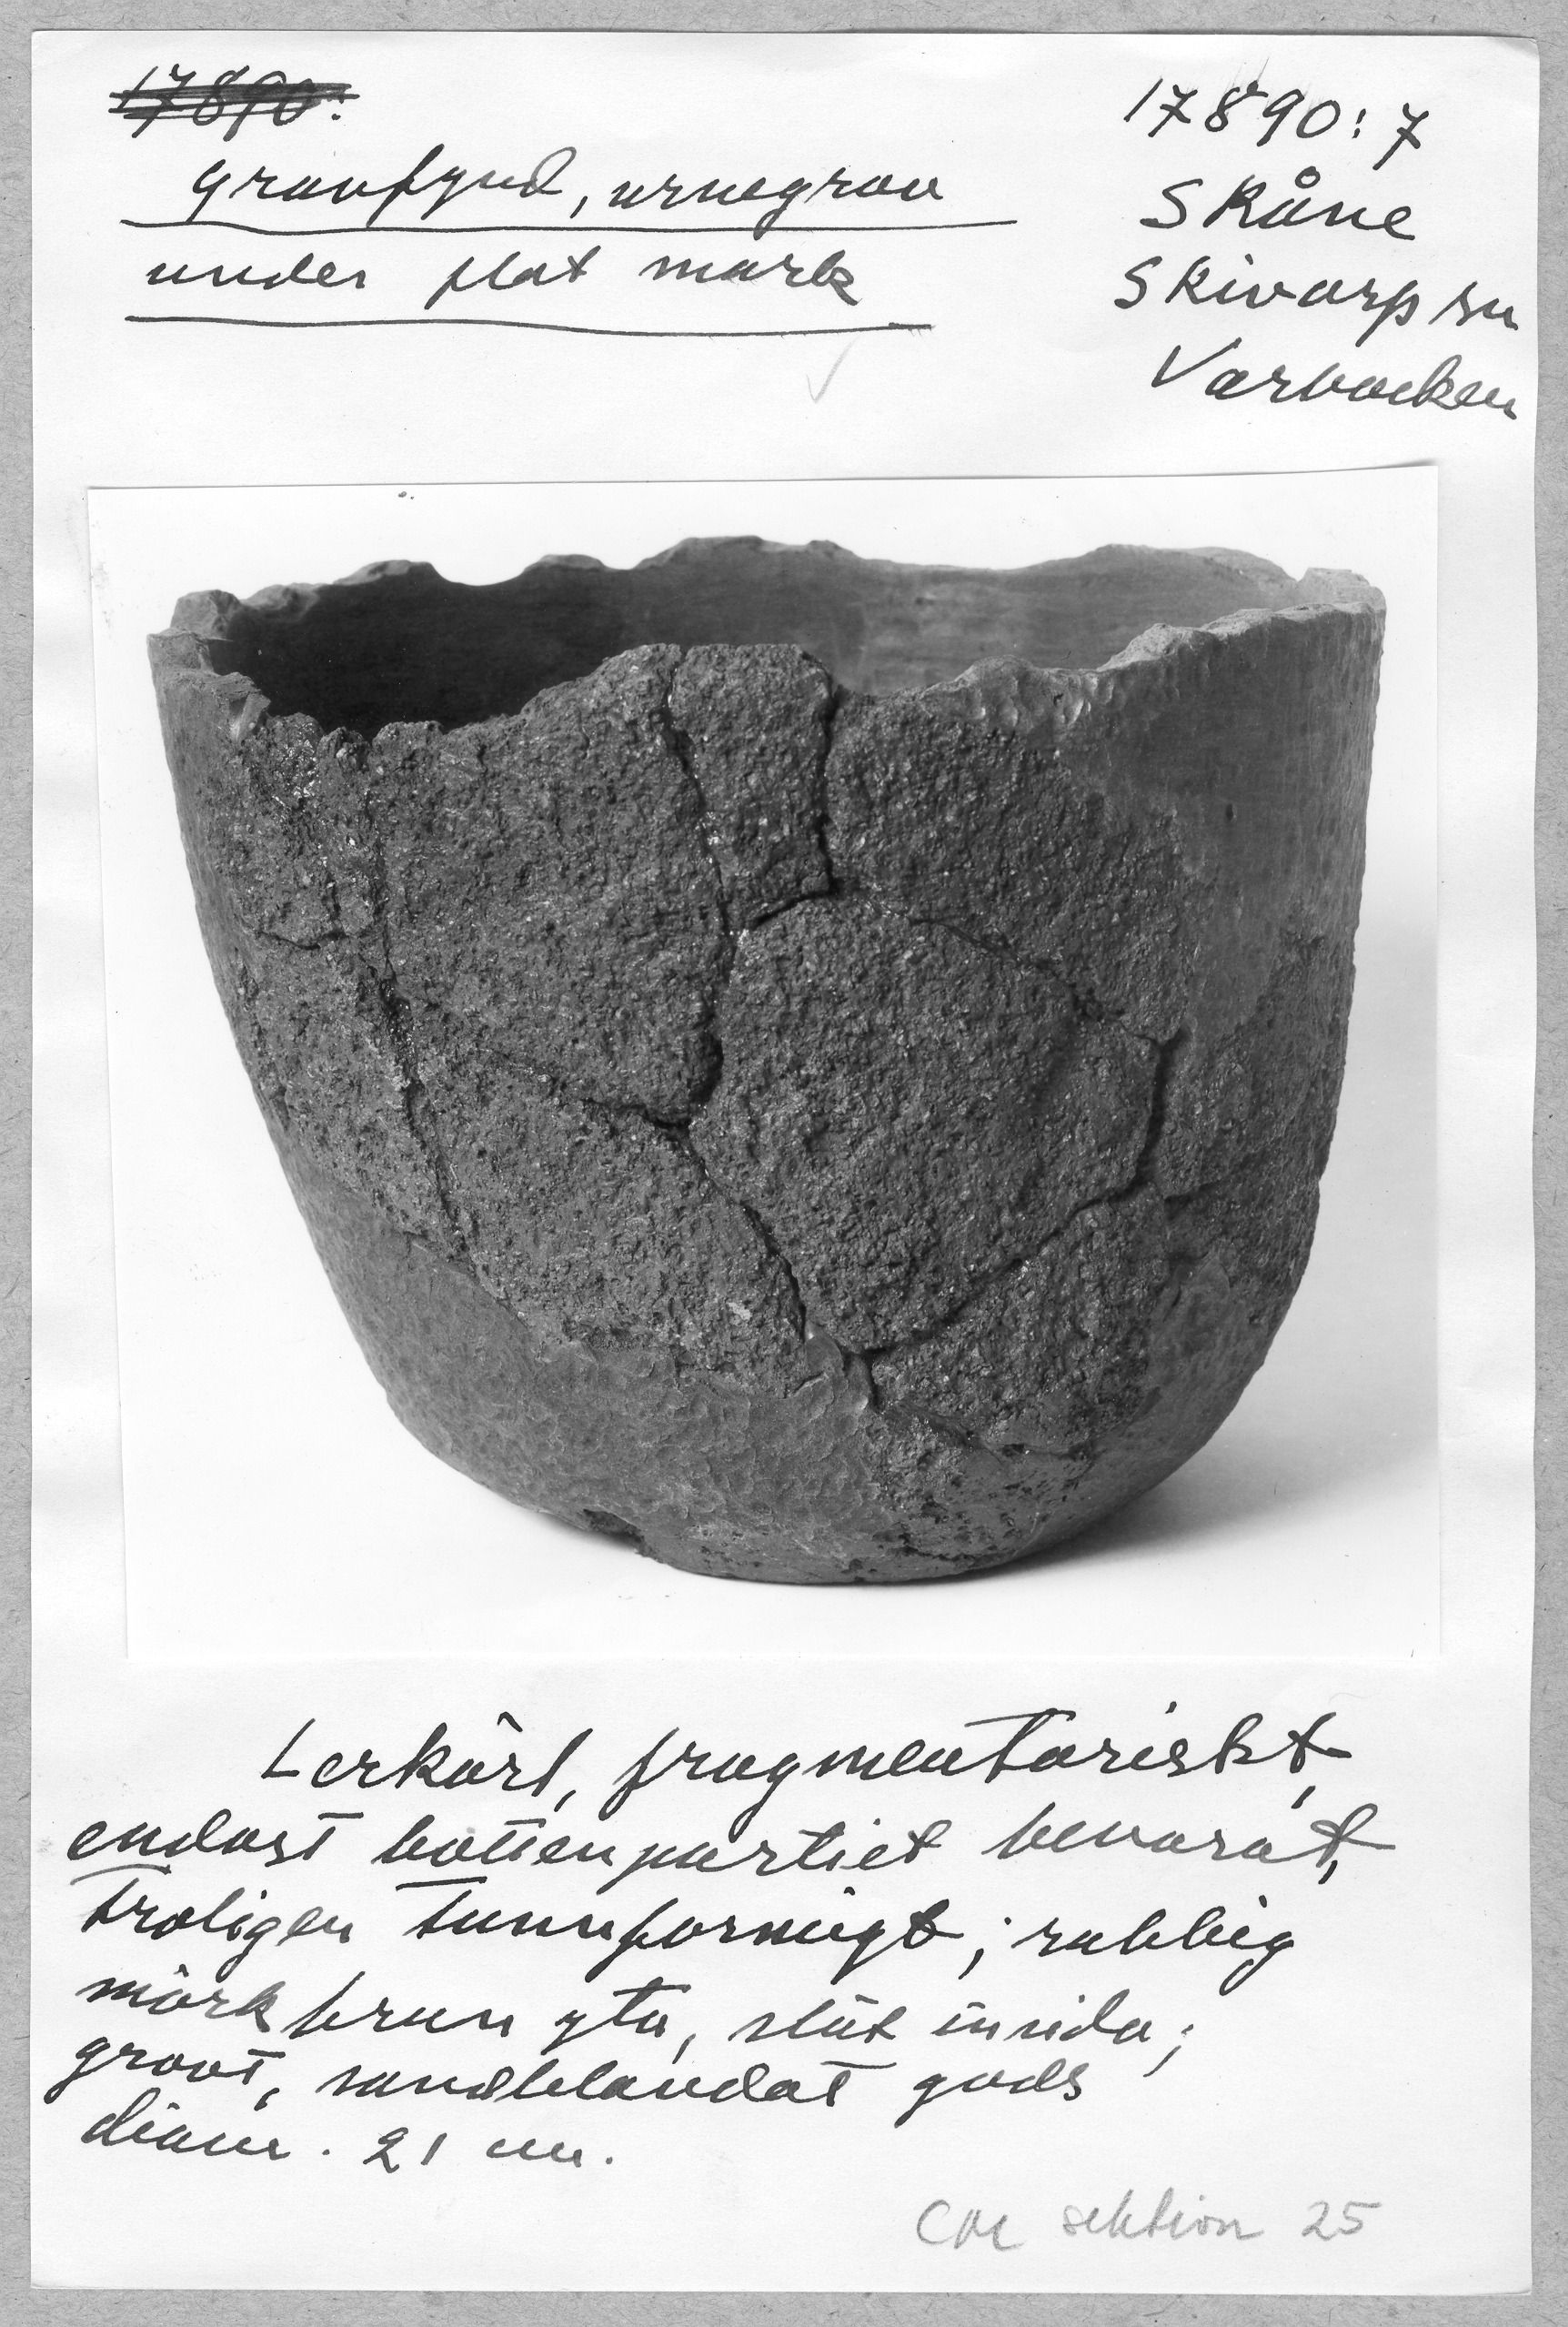 17890:
Gravfynd, urnegrav
under flat mark
17890:7
Skåne
Skivarp sn
Varbacken
Lerkärl, fragmentariskt,
endast bottenpartiet bevarat,
troligen tunnformigt; rabbig
mörkbrun yta, slät insida;
grovt, sandblandat gods
diam. 21 cm.
sektion 25